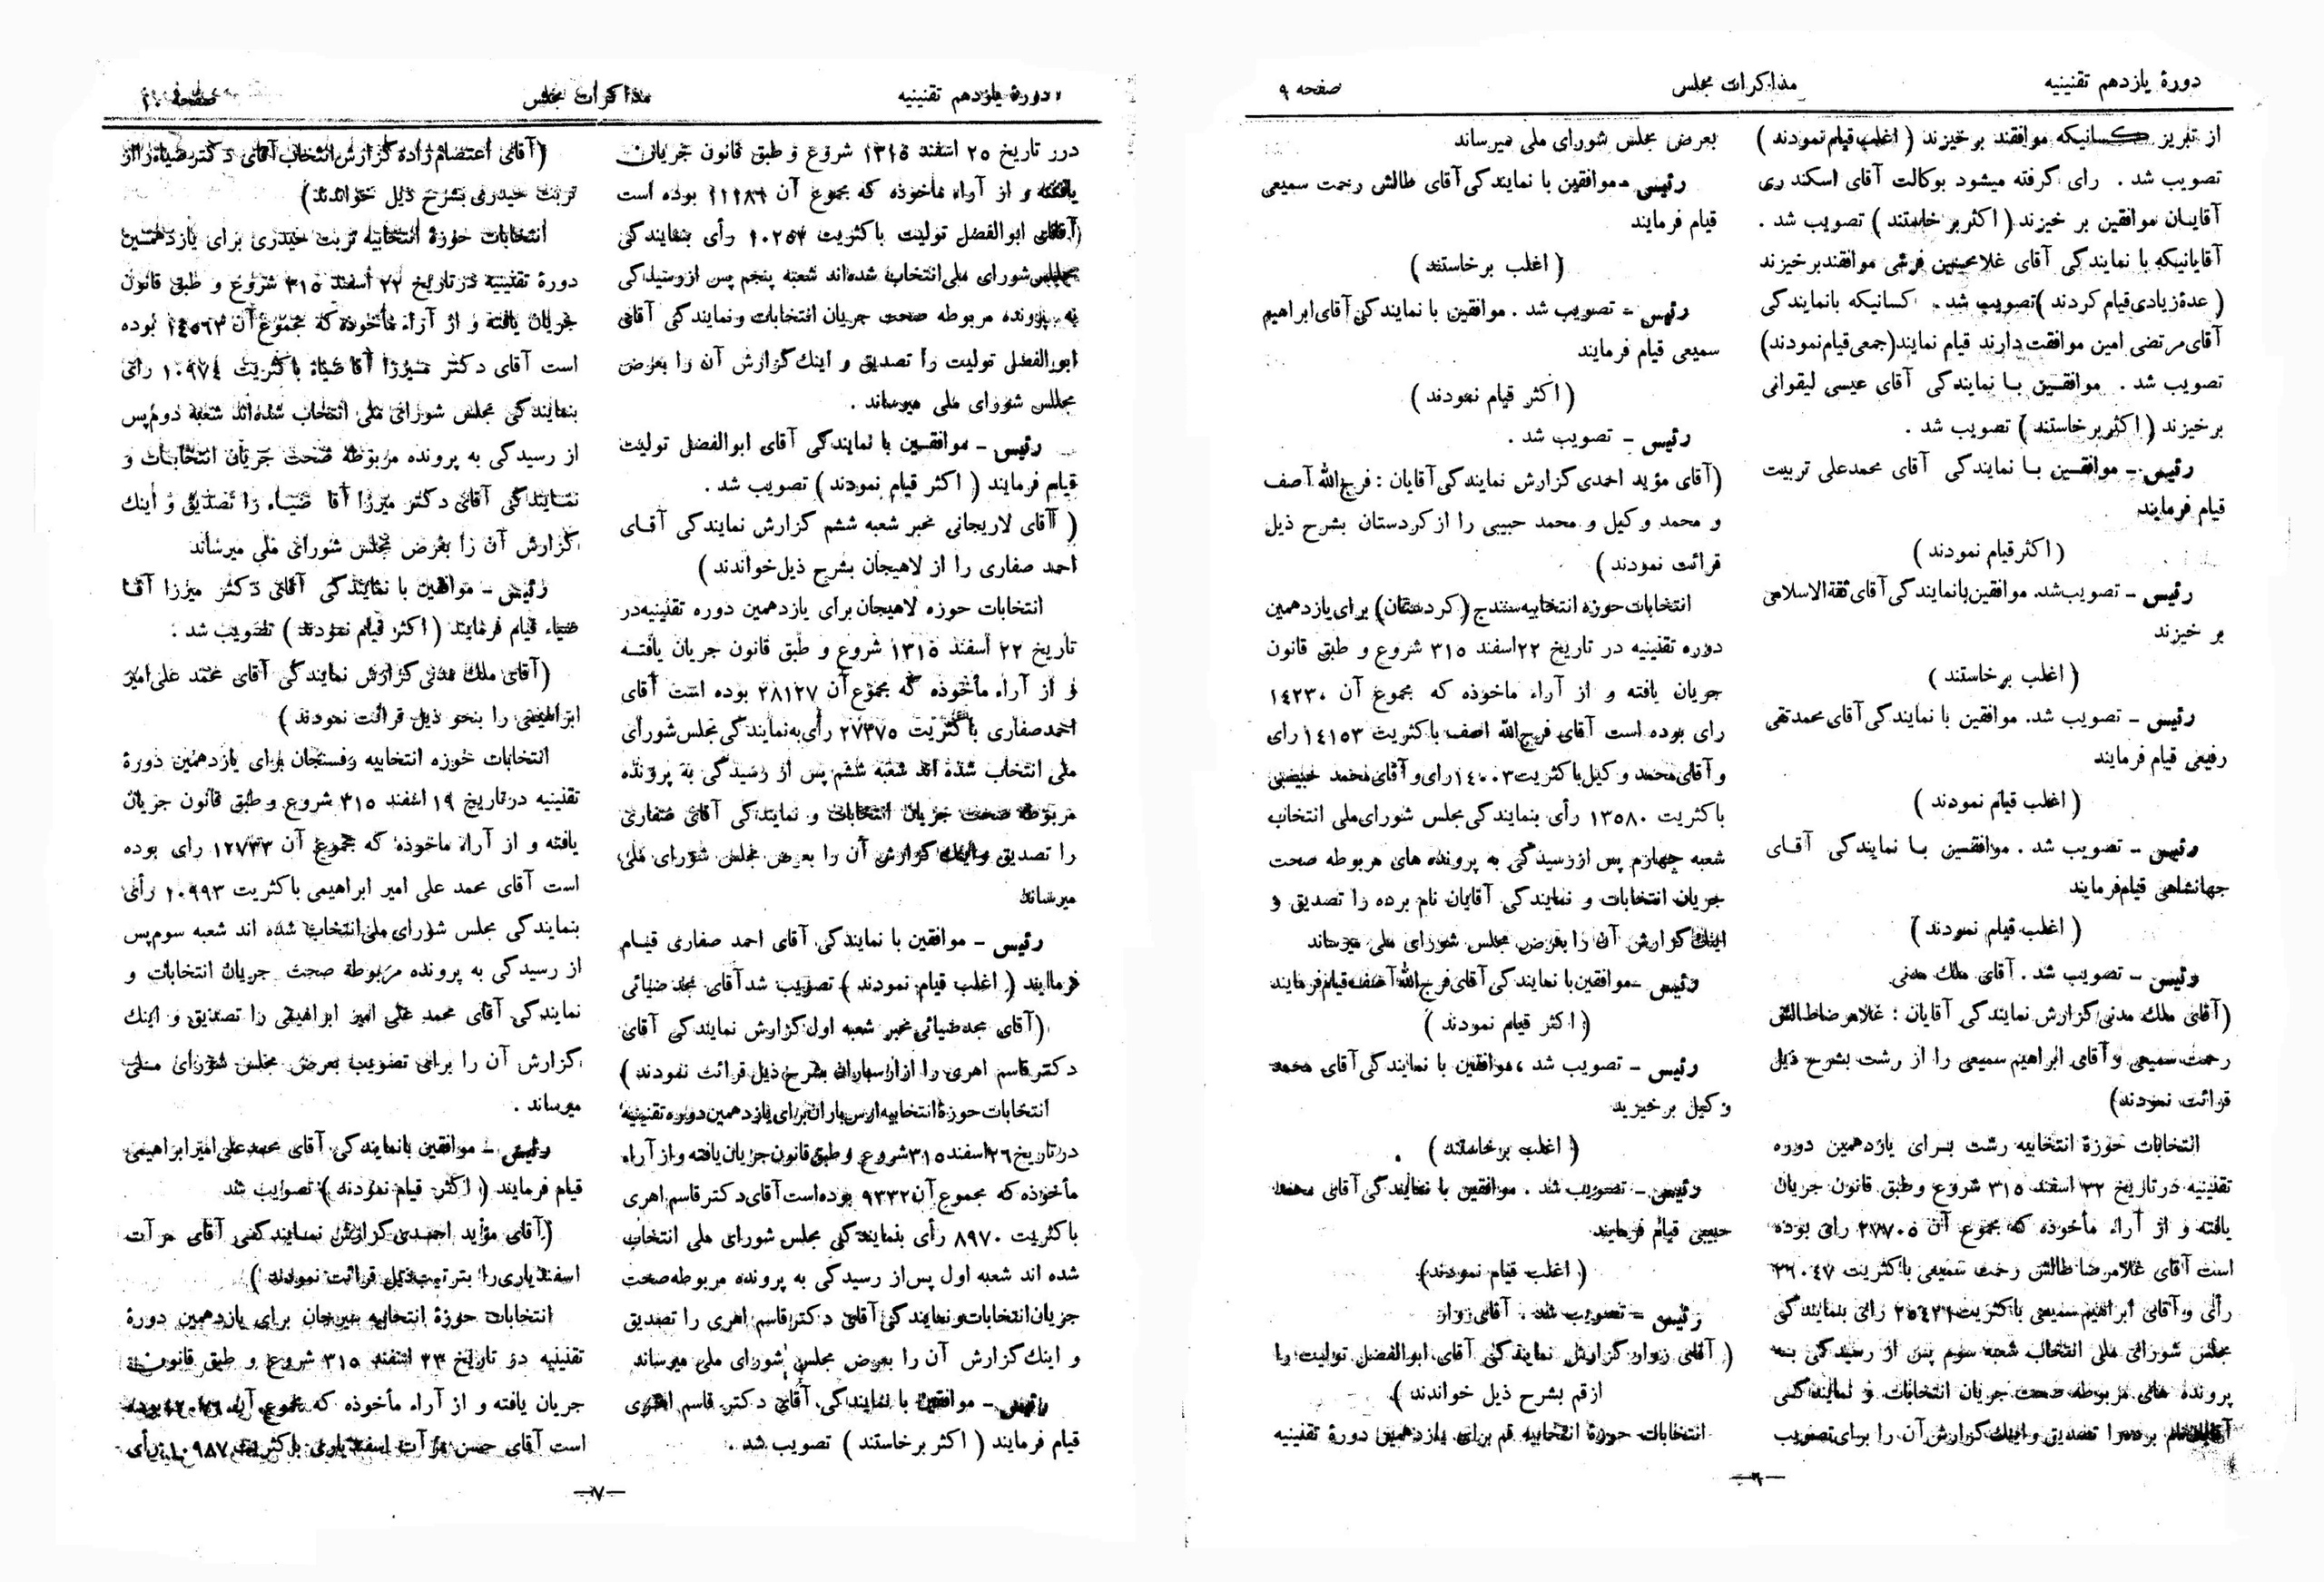 دورهٔ یازدهم تقنینیه
مذاکرات مجلس
صفحه ۹
از تبریز کسانیکه موافقند برخیزند ( اغلب قیام نمودند )
تصویب شد . رای گرفته میشود بوکالت آقای اسکندری
آقایان موافقین بر خیزند ( اکثر بر خاستند ) تصویب شد .
آقایانیکه با نمایندگی آقای غلامحسین فرشی موافقند برخیزند
( عدهٔ زیادی قیام کردند ) تصویب شد . کسانیکه بانمایندگی
آقای مرتضی امین موافقت دارند قیام نمایند (جمعی قیام نمودند)
تصویب شد . موافقین با نمایندگی آقای عیسی لیقوانی
برخیزند ( اکثر برخاستند ) تصویب شد .
رئیس – موافقین با نمایندگی آقای محمدعلی تربیت
قیام فرمایند
( اکثر قیام نمودند )
رئیس – تصویب شد. موافقین بانمایندگی آقای ثقة الاسلامی
بر خیزند
( اغلب برخاستند )
رئیس – تصویب شد. موافقین با نمایندگی آقای محمدتقی
رفیعی قیام فرمایند
( اغلب قیام نمودند )
رئیس – تصویب شد . موافقین با نمایندگی آقای
جهانشاهی قیام فرمایند
( اغلب قیام نمودند )
رئیس – تصویب شد . آقای ملك مدنی
(آقای ملك مدنی گزارش نمایندگی آقایان : غلامرضا طالش
رحمت سمیعی و آقای ابراهیم سمیعی را از رشت بشرح ذیل
قرائت نمودند)
انتخابات حوزهٔ انتخابیه رشت برای یازدهمین دوره
تقنینیه در تاریخ اسفند ۳۱۵ شروع و طبق قانون جریان
یافته و از آراء مأخوذه که مجموع آن رای بوده
است آقای غلامرضا طالش رحمت سمیعی باکثریت
رأی و آقای ابراهیم سمیعی باکثریت رای بنمایندگی
مجلس شورای ملی انتخاب شعبه سوم پس از رسیدگی به
پرونده های مربوطه صحت جریان انتخابات و نمایندگی
آقایان نام برده را تصدیق و اینك گزارش آن را برای تصویب
بعرض مجلس شورای ملی میرساند
رئیس – موافقین با نمایندگی آقای طالش رحمت سمیعی
قیام فرمایند
( اغلب برخاستند )
رئیس – تصویب شد . موافقین با نمایندگی آقای ابراهیم
سمیعی قیام فرمایند
( اکثر قیام نمودند )
رئیس – تصویب شد .
(آقای مؤید احمدی گزارش نمایندگی آقایان : فرج الله آصف
و محمد وکیل و محمد حبیبی را از کردستان بشرح ذیل
قرائت نمودند )
انتخابات حوزه انتخابیه سنندج (کردستان) برای یازدهمین
دوره تقنینیه در تاریخ ۲۲ اسفند ۳۱۵ شروع و طبق قانون
جریان یافته و از آراء ماخوذه که مجموع آن ۱۴۲۳۰
رای بوده است آقای فرج الله اصف باکثریت ۱۴۱۵۳ رای
و آقای محمد وکیل باکثریت ۱۴۰۰۳ رای و آقای محمد حبیبی
باکثریت ۱۳۵۸۰ رأی بنمایندگی مجلس شورای ملی انتخاب
شعبه چهارم پس از رسیدگی به پرونده های مربوطه صحت
جریان انتخابات و نمایندگی آقایان نام برده را تصدیق و
اینك گزارش آن را بعرض مجلس شورای ملی میرساند
رئیس – موافقین با نمایندگی آقای فرج الله آصف قیام فرمایند
( اکثر قیام نمودند )
رئیس – تصویب شد ، موافقین با نمایندگی آقای محمد
وکیل برخیزید
( اغلب برخاستند ) .
رئیس – تصویب شد . موافقین با نمایندگی آقای محمد
حبیبی قیام فرمایند
( اغلب قیام نمودند )
رئیس – تصویب شد . آقای زوار
( آقای زوار گزارش نمایندگی آقای ابوالفضل تولیت را
از قم بشرح ذیل خواندند )
انتخابات حوزهٔ انتخابیه قم برای یازدهمین دورهٔ تقنینیه
—۶—
دورهٔ یازدهم تقنینیه
مذاکرات مجلس
صفحه ۱۰
درر تاریخ ۲۵ اسفند ۱۳۱۵ شروع و طبق قانون جریان
یافته و از آراء مأخوذه که مجموع آن بوده است
آقای ابوالفضل تولیت باکثریت ۱۰۲۵۳ رأی بنمایندگی
مجلس شورای ملی انتخاب شده‌اند شعبه پنجم پس از رسیدگی
به پرونده مربوطه صحت جریان انتخابات و نمایندگی آقای
ابوالفضل تولیت را تصدیق و اینك گزارش آن را بعرض
مجلس شورای ملی میرساند .
رئیس – موافقین با نمایندگی آقای ابوالفضل تولیت
قیام فرمایند ( اکثر قیام نمودند ) تصویب شد .
( آقای لاریجانی مخبر شعبه ششم گزارش نمایندگی آقای
احمد صفاری را از لاهیجان بشرح ذیل خواندند )
انتخابات حوزه لاهیجان برای یازدهمین دوره تقنینیه در
تاریخ ۲۲ اسفند ۱۳۱۵ شروع و طبق قانون جریان یافته
و از آراء مأخوذه که مجموع آن ۲۸۱۲۷ بوده است آقای
احمد صفاری باکثریت ۲۷۳۷۵ رأی به نمایندگی مجلس شورای
ملی انتخاب شده اند شعبه ششم پس از رسیدگی به پرونده
مربوطه صحت جریان انتخابات و نمایندگی آقای صفاری
را تصدیق و اینك گزارش آن را بعرض مجلس شورای ملی
میرساند
رئیس – موافقین با نمایندگی آقای احمد صفاری قیام
فرمایند ( اغلب قیام نمودند ) تصویب شد آقای مجد ضیائی
(آقای مجد ضیائی مخبر شعبه اول گزارش نمایندگی آقای
دکتر قاسم اهری را از ارسباران بشرح ذیل قرائت نمودند )
انتخابات حوزهٔ انتخابیه ارس باران برای یازدهمین دوره تقنینیه
در تاریخ ۲۶ اسفند ۳۱۵ شروع و طبق قانون جریان یافته و از آراء
مأخوذه که مجموع آن ۹۳۳۲ بوده است آقای دکتر قاسم اهری
باکثریت ۸۹۷۰ رأی بنمایندگی مجلس شورای ملی انتخاب
شده اند شعبه اول پس از رسیدگی به پرونده مربوطه صحت
جریان انتخابات و نمایندگی آقای دکتر قاسم اهری را تصدیق
و اینك گزارش آن را بعرض مجلس شورای ملی میرساند
رئیس – موافقین با نمایندگی آقای دکتر قاسم اهری
قیام فرمایند ( اکثر برخاستند ) تصویب شد .
(آقای اعتصام زاده گزارش انتخاب آقای دکتر ضیاء را از
تربت حیدری بشرح ذیل خواندند)
انتخابات حوزهٔ انتخابیه تربت حیدری برای یازدهمین
دورهٔ تقنینیه در تاریخ ۲۲ اسفند ۳۱۵ شروع و طبق قانون
جریان یافته و از آراء مأخوذه که مجموع آن ۱۴۵۶۳ بوده
است آقای دکتر میرزا آقا ضیاء باکثریت ۱۰۹۷۴ رأی
بنمایندگی مجلس شورای ملی انتخاب شده‌اند شعبه دوم پس
از رسیدگی به پرونده مربوطه صحت جریان انتخابات و
نمایندگی آقای دکتر میرزا آقا ضیاء را تصدیق و اینك
گزارش آن را بعرض مجلس شورای ملی میرساند
رئیس – موافقین با نمایندگی آقای دکتر میرزا آقا
ضیاء قیام فرمایند ( اکثر قیام نمودند ) تصویب شد .
(آقای ملك مدنی گزارش نمایندگی آقای محمد علی امیر
ابراهیمی را بنحو ذیل قرائت نمودند )
انتخابات حوزه انتخابیه رفسنجان برای یازدهمین دورهٔ
تقنینیه در تاریخ ۱۹ اسفند ۳۱۵ شروع و طبق قانون جریان
یافته و از آراء ماخوذه که مجموع آن ۱۲۷۳۳ رای بوده
است آقای محمد علی امیر ابراهیمی باکثریت ۱۰۹۹۳ رأی
بنمایندگی مجلس شورای ملی انتخاب شده اند شعبه سوم پس
از رسیدگی به پرونده مربوطه صحت جریان انتخابات و
نمایندگی آقای محمد علی امیر ابراهیمی را تصدیق و اینك
گزارش آن را برای تصویب بعرض مجلس شورای ملی
میرساند .
رئیس – موافقین بانمایندگی آقای محمد علی امیر ابراهیمی
قیام فرمایند ( اکثر قیام نمودند ) تصویب شد
(آقای مؤید احمدی گزارش نمایندگی آقای مرآت
اسفندیاری را بترتیب ذیل قرائت نمودند )
انتخابات حوزهٔ انتخابیه سیرجان برای یازدهمین دورهٔ
تقنینیه در تاریخ ۲۳ اسفند ۳۱۵ شروع و طبق قانون
جریان یافته و از آراء مأخوذه که مجموع آن بوده
است آقای حسن مرآت اسفندیاری باکثریت ۱۰۹۸۷ رأی
—۷—